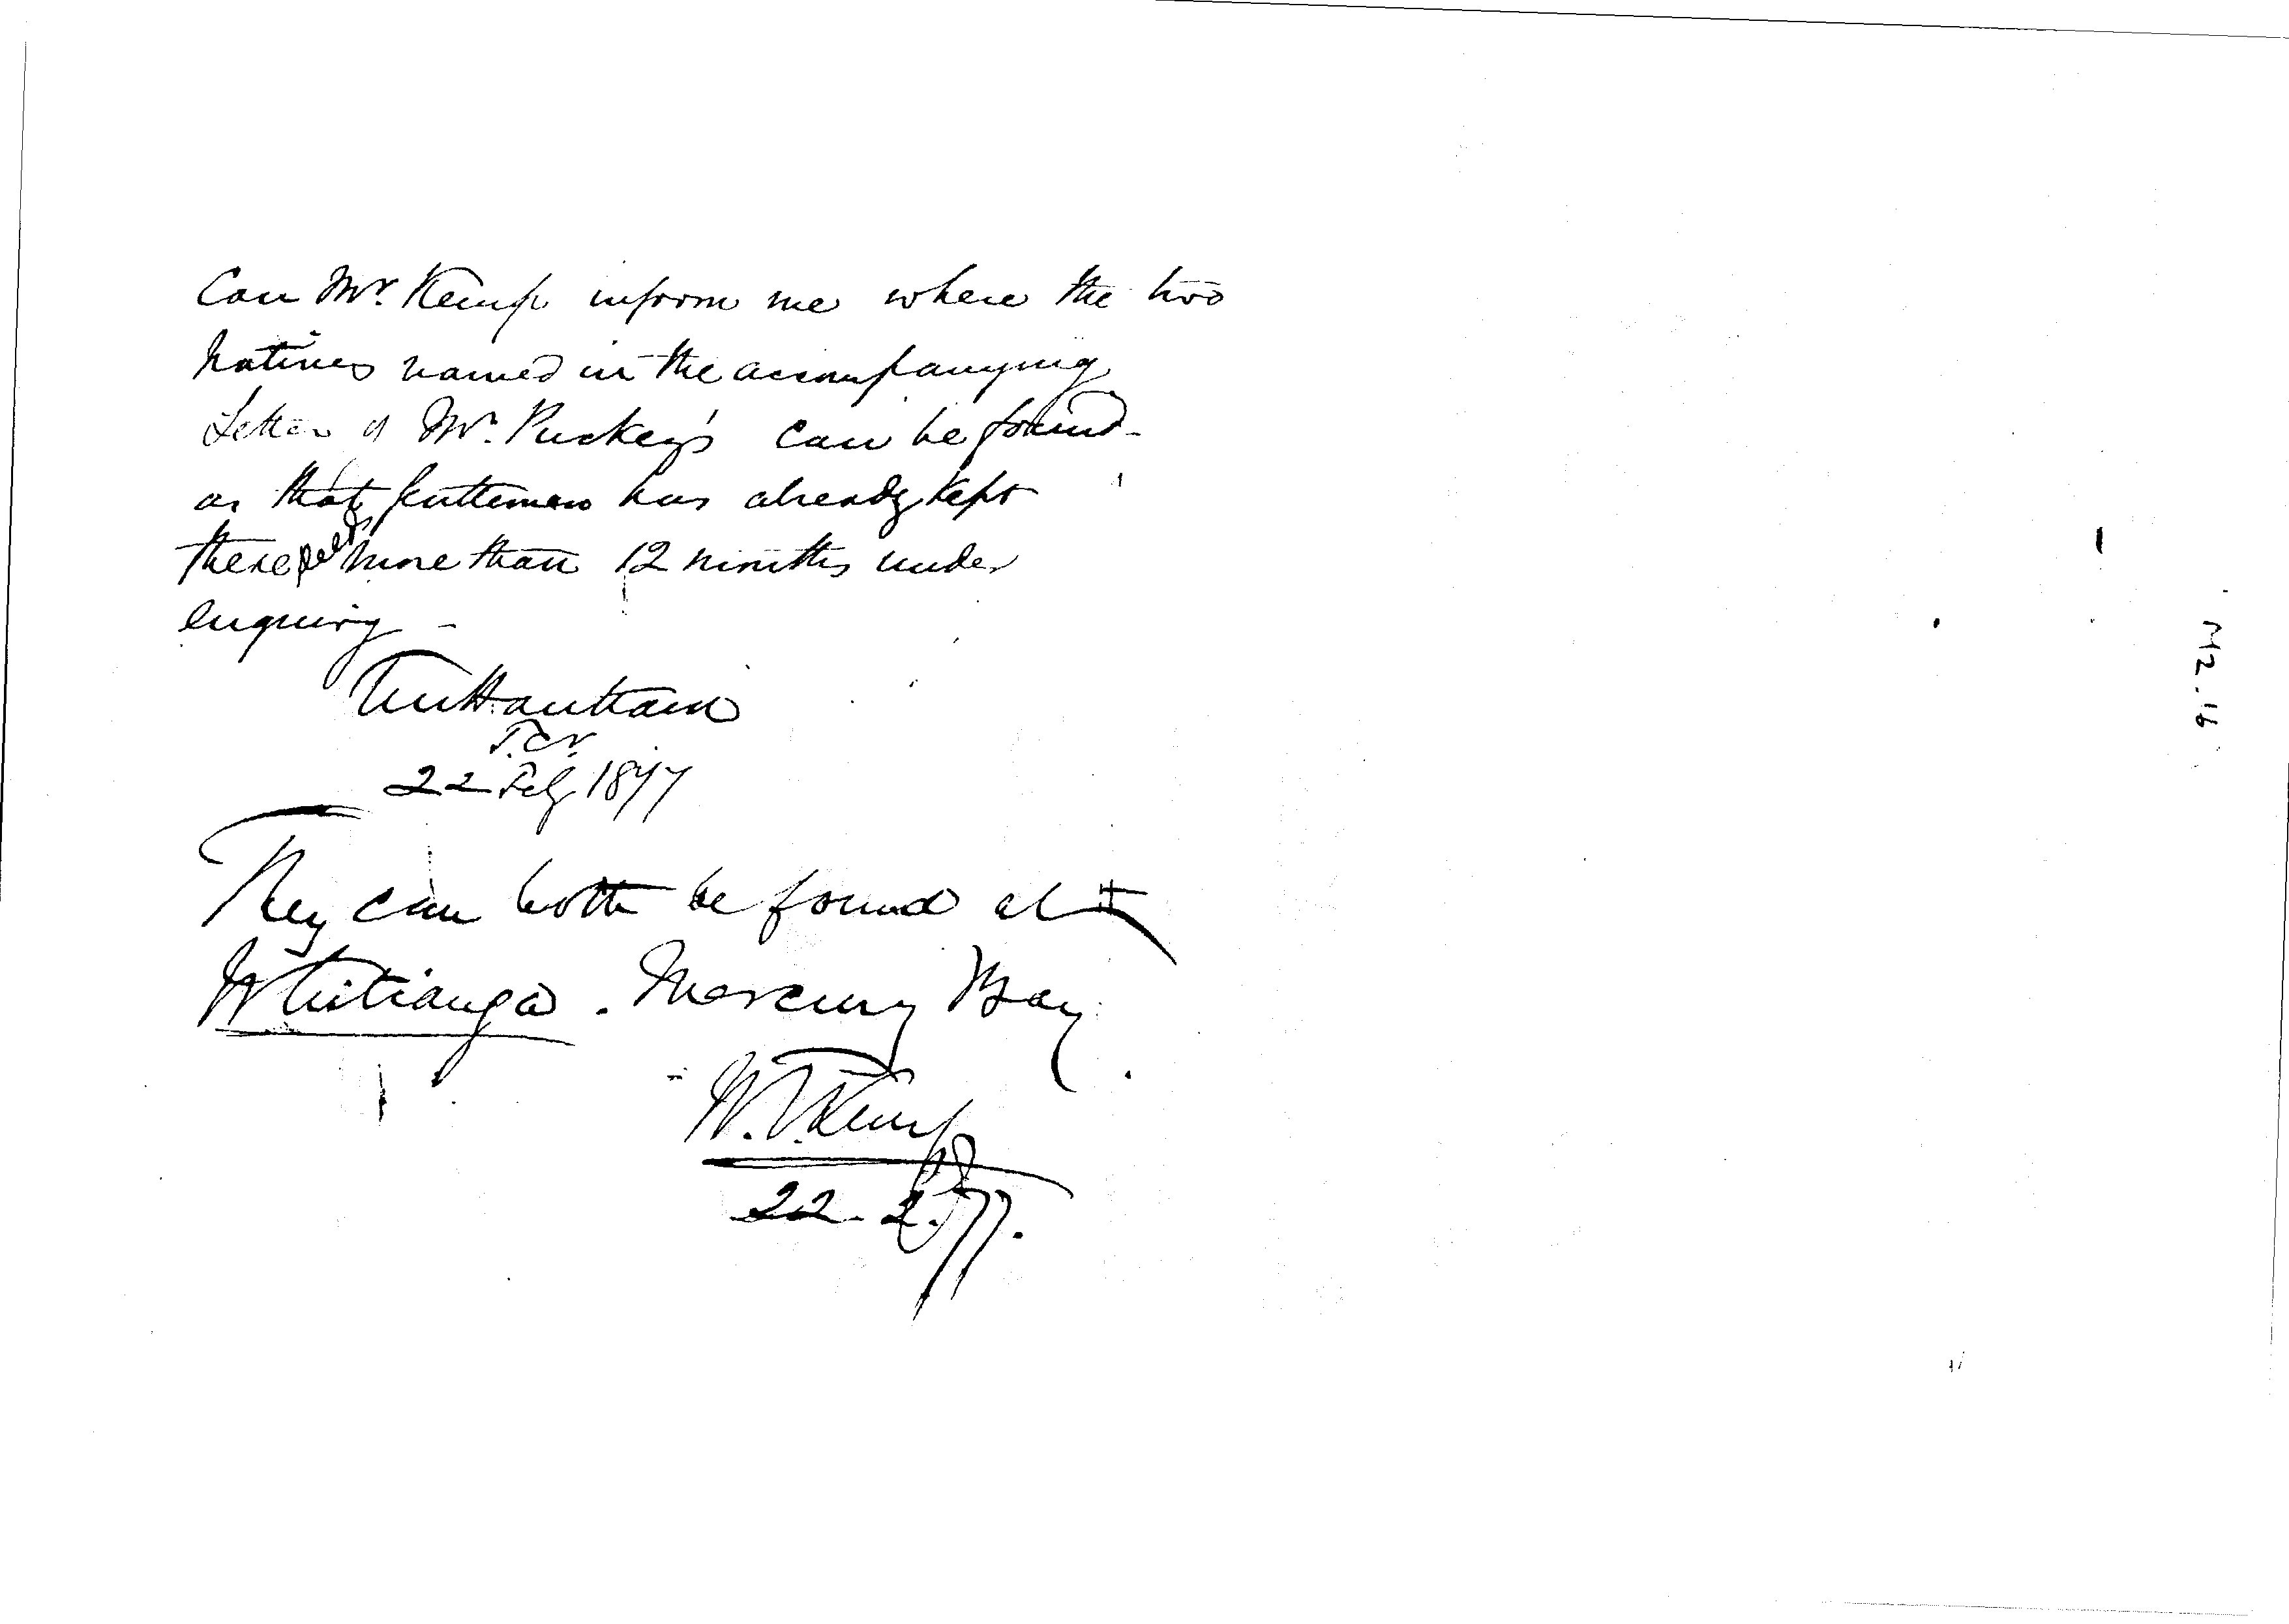 Can Mr. Kemp inform me where the two
Natives named in the accompanying
Letter of Mr. Puckey's can be found
as that gentleman has already kept
these more than 12 months under
enquiry -
22 Feby 1877
They can both be found at
Whitianga. Mercury Bay.
H. T. Kemp
22. 2. 77.